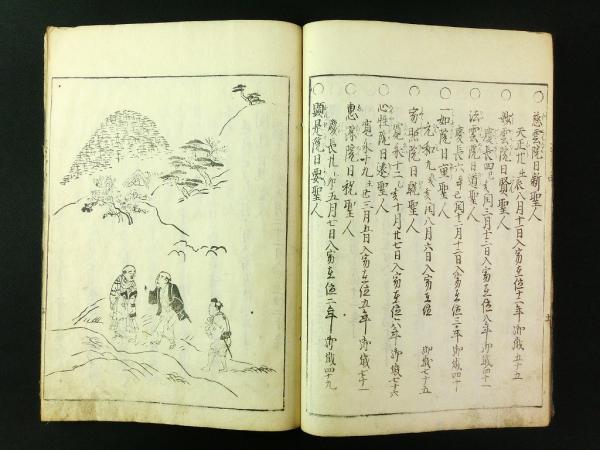 慈雲院日新聖人
天正廿壬辰八月十日入寂在位十一年御歳五十五
妙雲院日賢聖人
慶長四己亥閏三月十三日入寂在位八年御歳四十一
法雲院日道聖人
慶長六辛丑閏十一月十二日入寂在位三年御歳四十
一如院日重聖人
元和九癸亥閏八月六日入寂在位 御歳七十五
寂照院日乾聖人
寛永十二乙亥十月廿七日入寂在位八年御歳七十六
心性院日遠聖人
寛永十九壬午三月五日入寂在位五年御歳七十一
恵深院日税聖人
慶長九 卯五月七日入寂在位二年御歳四十九
顕是院日要聖人